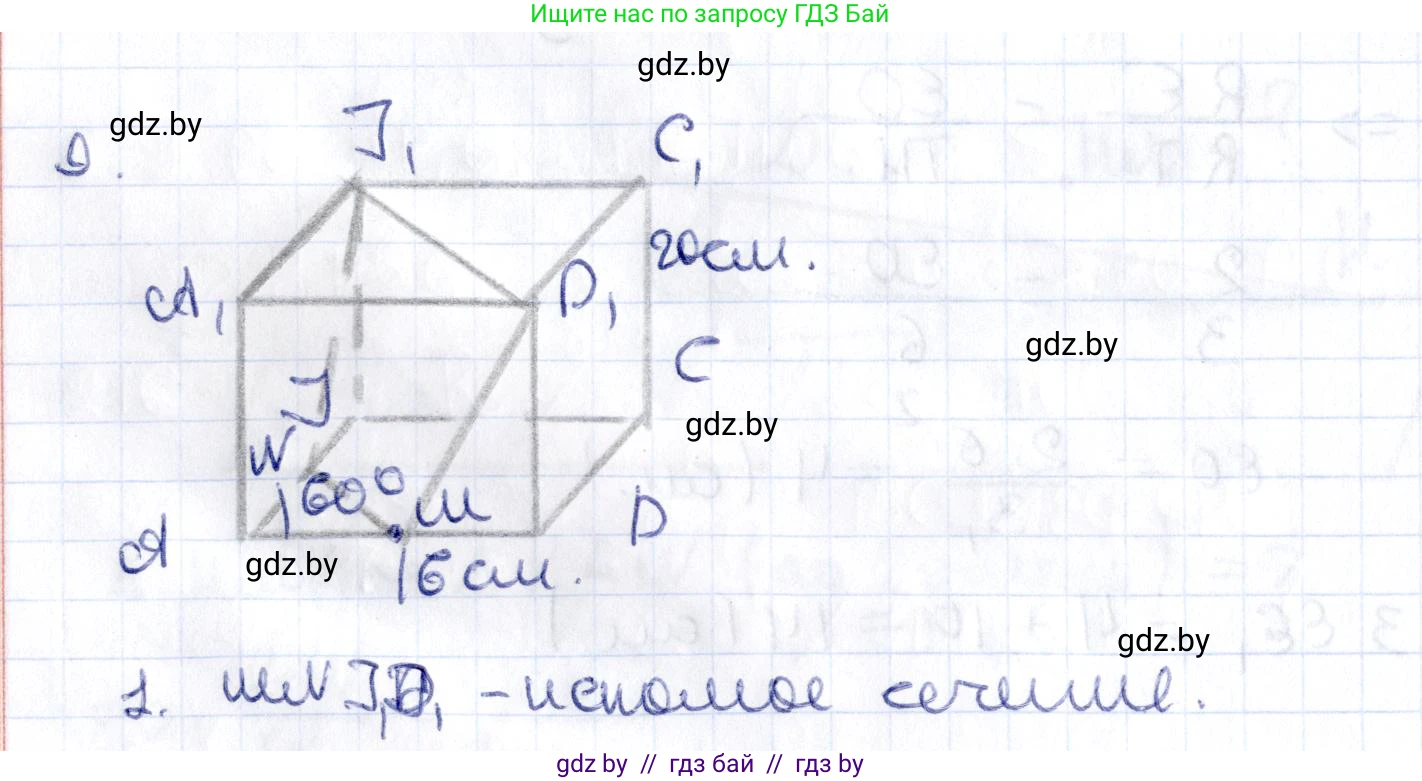 Ищите нас по запросу ГДЗ Бай
gdz.by
gdz.by
J₁
C₁
9.
20см.
A₁
D₁
gdz.by
C
J
gdz.by
N
60°
м
D
A
gdz.by
16см.
gdz.by
1. мN J₁D₁ - искомое сечение.
gdz.by // гдз бай // гдз by